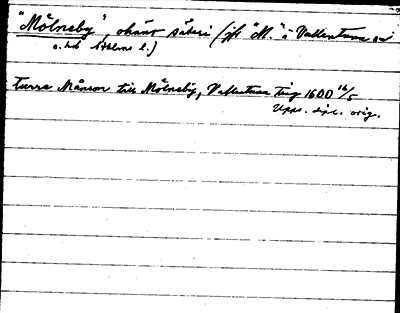 "Mölneby", okänt säteri (jfr "M." i Vallentuna sn
o. hd Sthlms l.)
Turre Månson till Mölneby, Vallentuna ting 1600 16/5
Upps. dipl. orig.